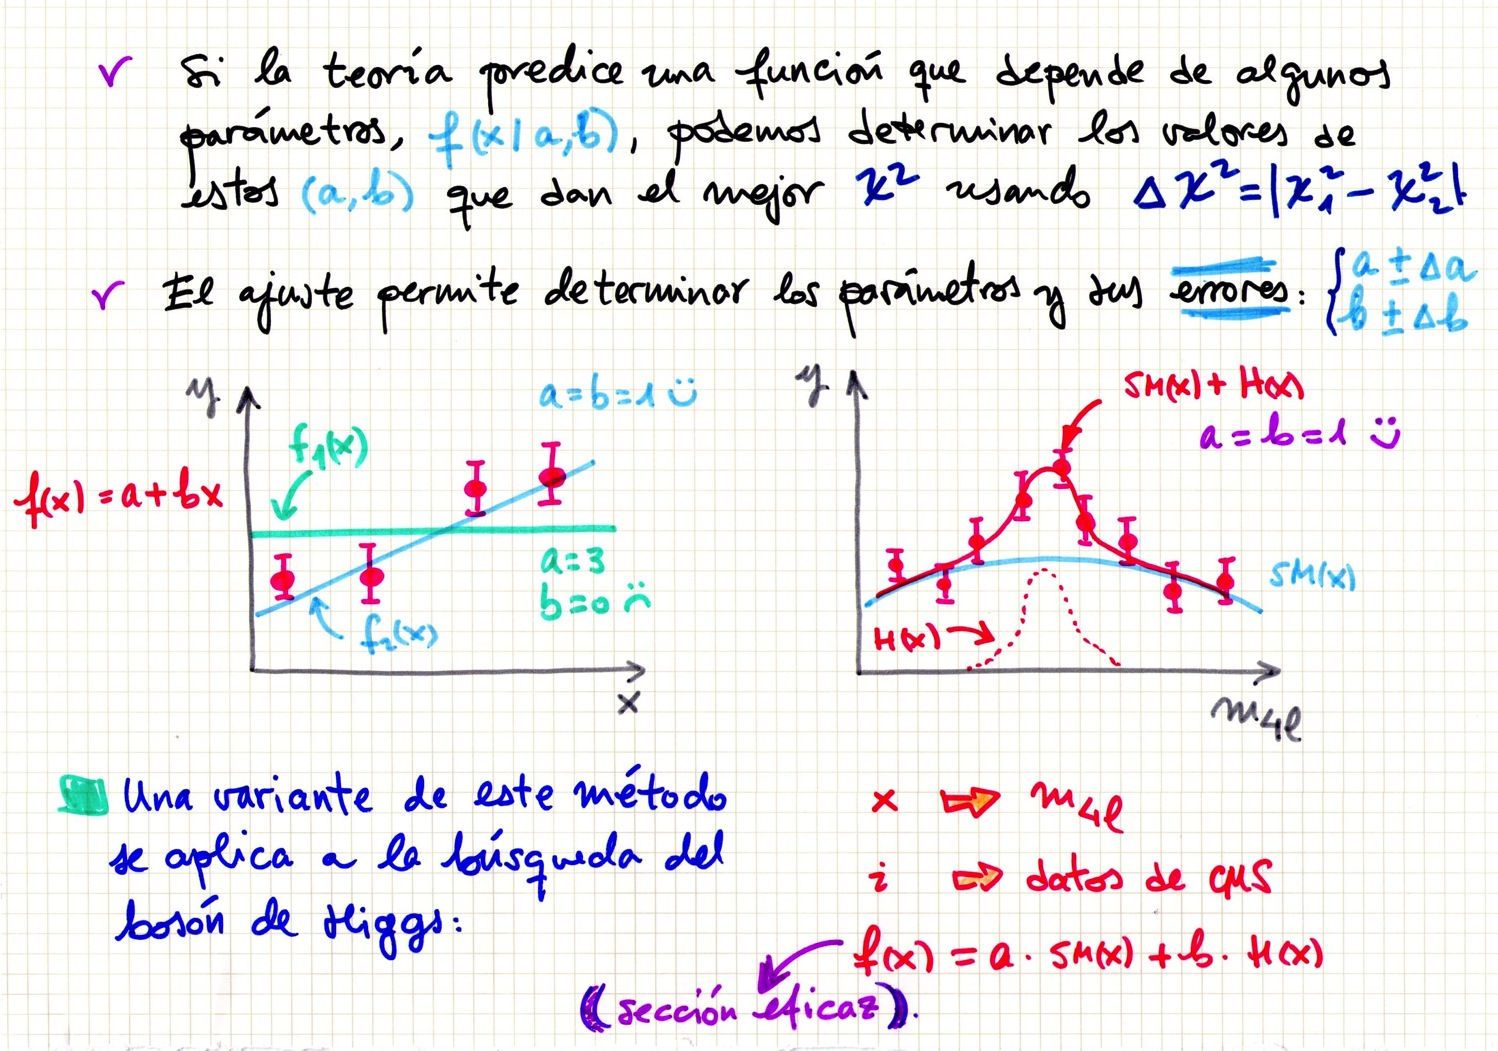 ✓ Si la teoría predice una función que depende de algunos
parámetros, f(x|a,b), podemos determinar los valores de
estos (a,b) que dan el mejor χ² usando Δχ²=|χ₁²-χ₂²|
✓ El ajuste permite determinar los parámetros y sus errores: { a ± Δa
b ± Δb
y
a=b=1 :)
f₁(x)
f(x)=a+bx
a=3
b=0 :(
f₂(x)
x
y
SM(x)+H(x)
a=b=1 :)
SM(x)
H(x)
m₄ℓ
Una variante de este método
se aplica a la búsqueda del
bosón de Higgs:
x ⇒ m₄ℓ
i ⇒ datos de CMS
f(x) = a · SM(x) + b · H(x)
(sección eficaz).